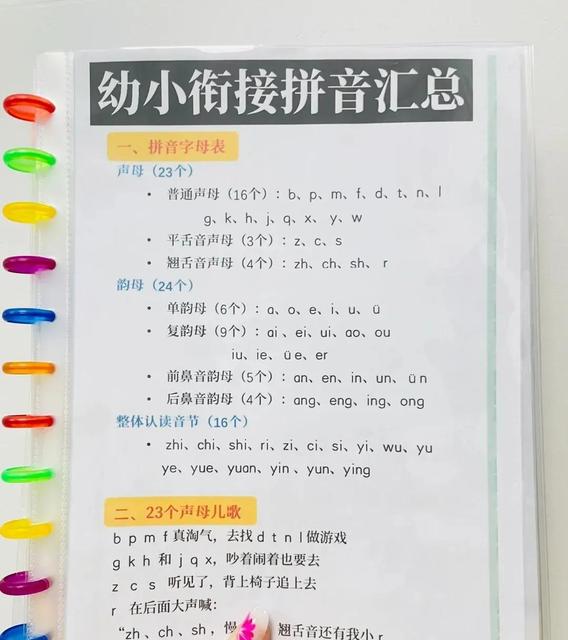 幼小衔接拼音汇总
一、拼音字母表
声母（23个）
• 普通声母（16个）：b、p、m、f、d、t、n、l
g、k、h、j、q、x、y、w
• 平舌音声母（3个）：z、c、s
• 翘舌音声母（4个）：zh、ch、sh、r
韵母（24个）
• 单韵母（6个）：a、o、e、i、u、ü
• 复韵母（9个）：ai、ei、ui、ao、ou
iu、ie、üe、er
• 前鼻音韵母（5个）：an、en、in、un、ün
• 后鼻音韵母（4个）：ang、eng、ing、ong
整体认读音节（16个）
• zhi、chi、shi、ri、zi、ci、si、yi、wu、yu
ye、yue、yuan、yin、yun、ying
二、23个声母儿歌
b p m f 真淘气，去找 d t n l 做游戏
g k h 和 j q x，吵着闹着也要去
z c s 听见了，背上椅子追上去
r 在后面大声喊：
“zh、ch、sh，慢 翘舌音还有我小 r